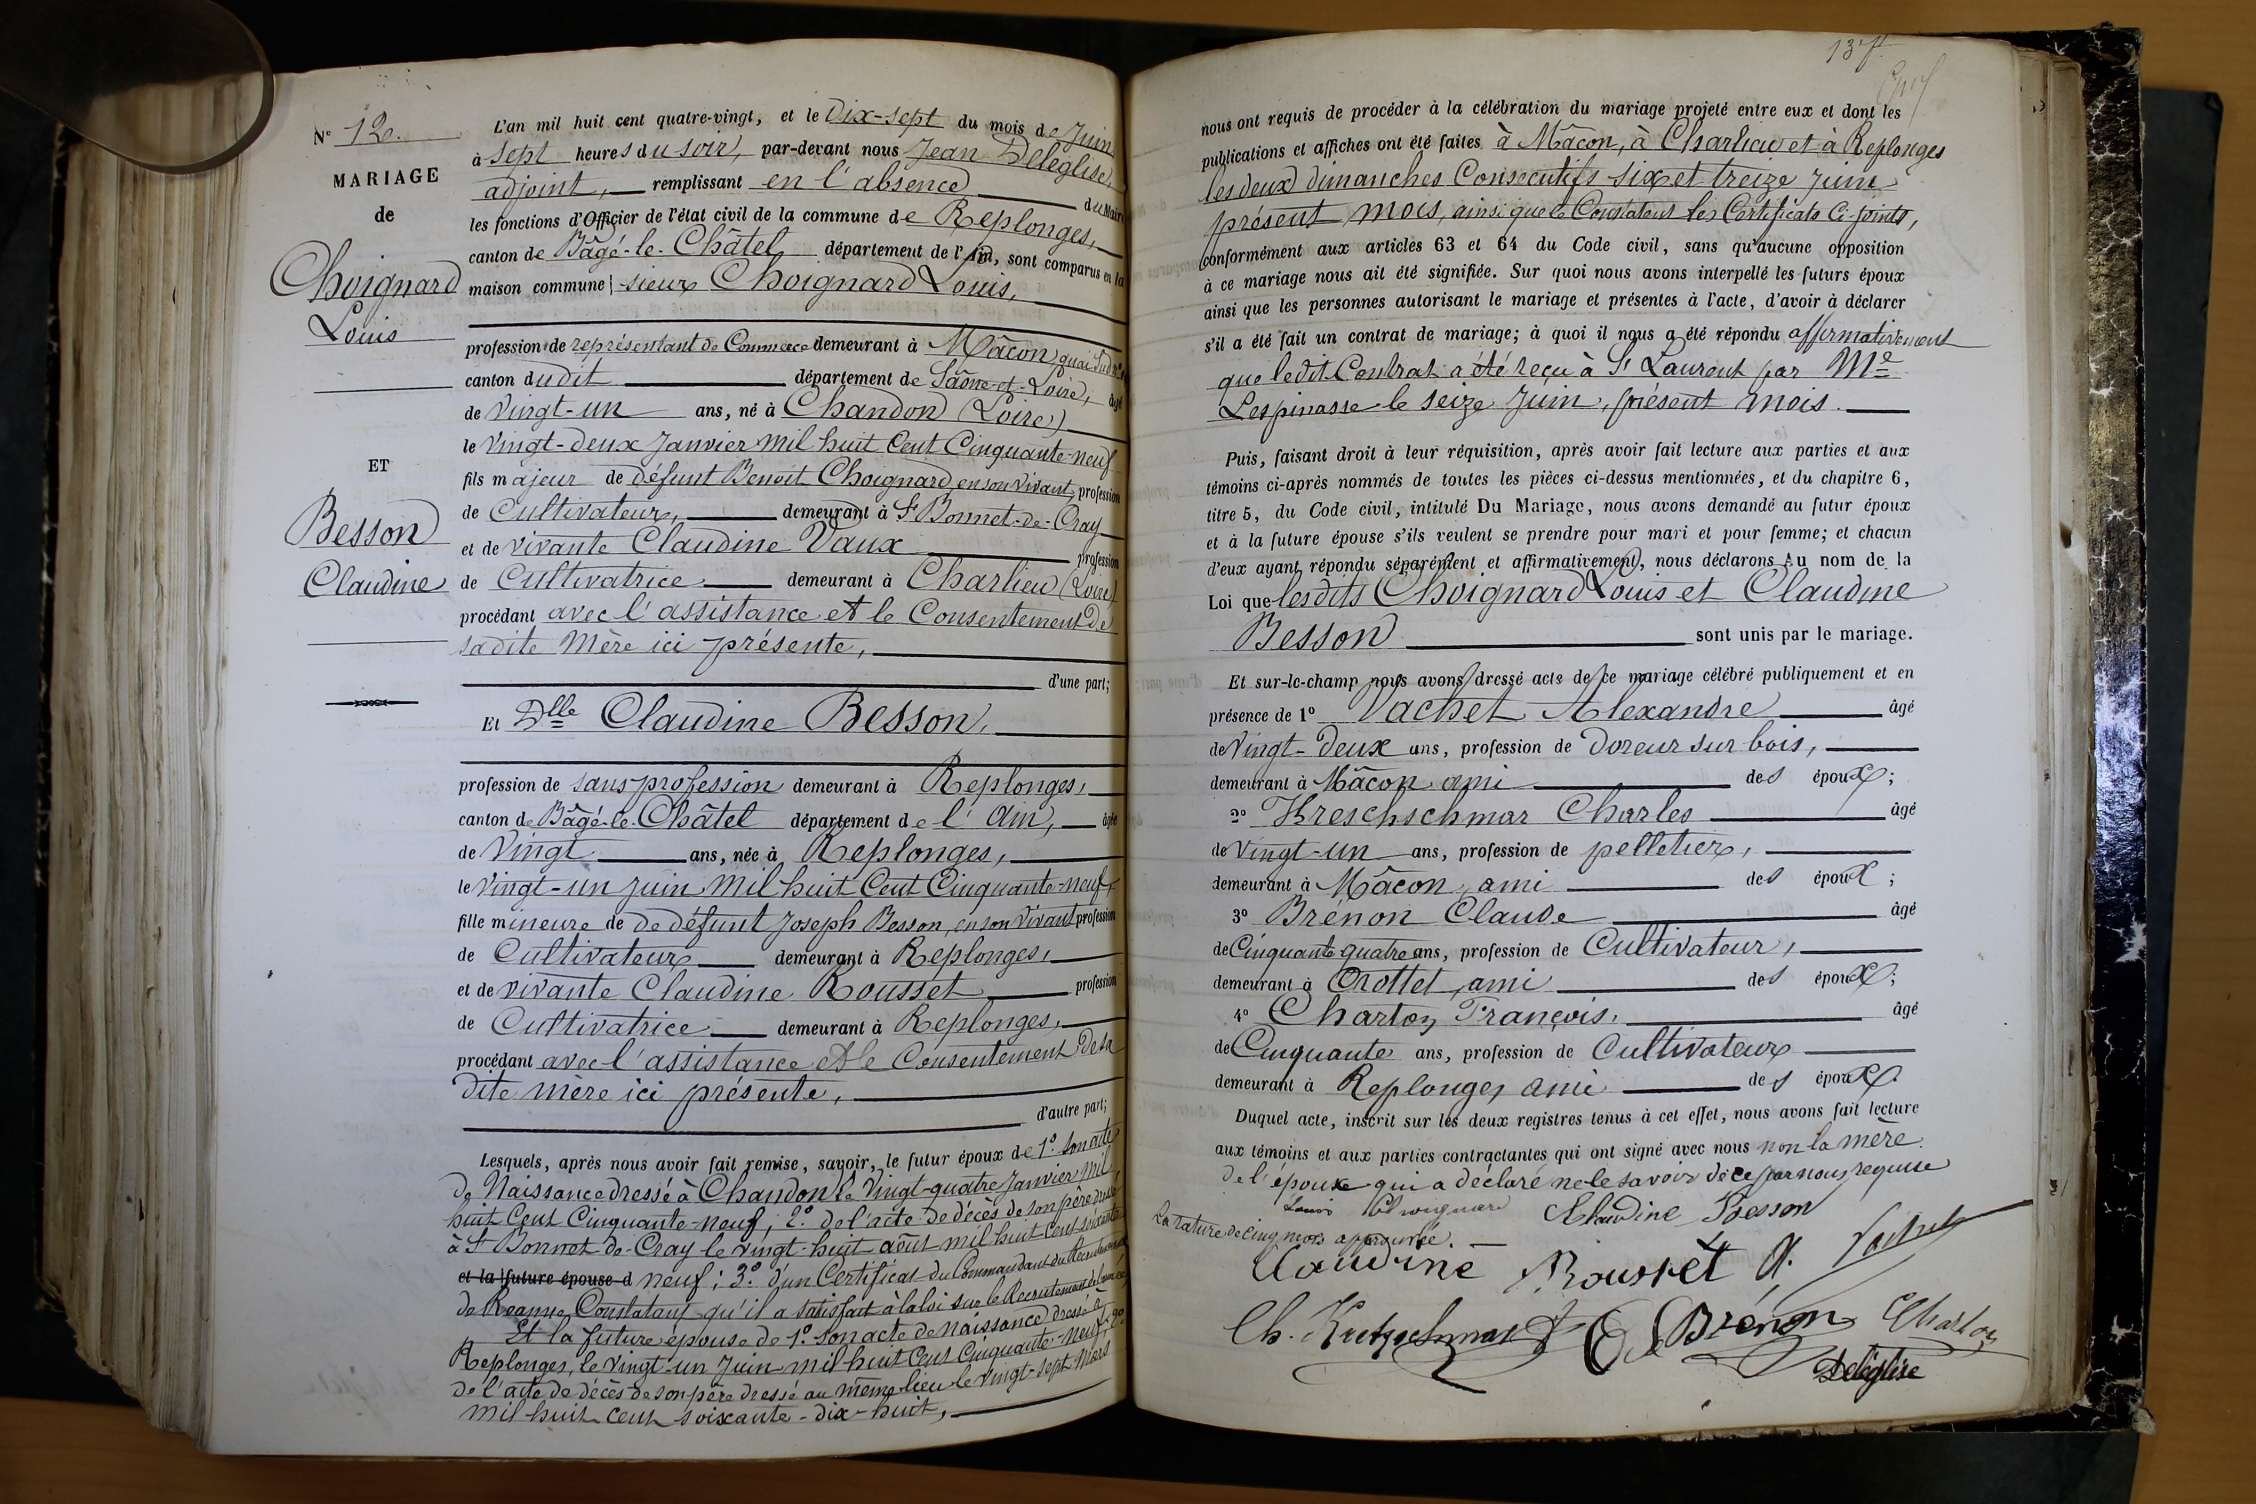 N° 12.
MARIAGE
de
Choignard
Louis
ET
Besson
Claudine
L'an mil huit cent quatre-vingt, et le Dix-sept du mois de Juin
à sept heures du soir, par-devant nous Jean Deléglise,
adjoint, remplissant en l'absence du Maire
les fonctions d'Officier de l'état civil de la commune de Replonges,
canton de Bâgé-le-Châtel département de l'Ain, sont comparus en la
maison commune : sieur Choignard Louis,
profession de représentant de Commerce demeurant à Mâcon quai sud n°
canton dudit département de Saône-et-Loire, âgé
de Vingt-un ans, né à Chandon (Loire)
le Vingt-deux Janvier mil huit Cent Cinquante-neuf
fils majeur de défunt Benoit Choignard, en son vivant, profession
de Cultivateur, demeurant à St Bonnet-de-Cray
et de vivante Claudine Vaux profession
de Cultivatrice demeurant à Charlieu (Loire)
procédant avec l'assistance et le Consentement De
sadite Mère ici présente,
d'une part;
Et Dlle Claudine Besson,
profession de sans profession demeurant à Replonges,
canton de Bâgé-le-Châtel département de l'Ain, âgée
de Vingt ans, née à Replonges,
le Vingt-un juin mil huit Cent Cinquante-neuf,
fille mineure de de défunt Joseph Besson, en son vivant profession
de Cultivateur demeurant à Replonges,
et de vivante Claudine Rousset profession
de Cultivatrice demeurant à Replonges,
procédant avec l'assistance et le Consentement De sa
dite mère ici présente,
d'autre part;
Lesquels, après nous avoir fait remise, savoir, le futur époux de 1° son acte
de Naissance dressé à Chandon le Vingt-quatre Janvier mil
huit Cent Cinquante-neuf; 2° de l'acte de décès de son père dressé
à St Bonnet-de-Cray le vingt-huit août mil huit Cent soixante
et la future épouse d neuf; 3° d'un Certificat du Commandant du Recrutement
de Roanne Constatant qu'il a satisfait à la loi sur le Recrutement de l'armée
Et la future épouse de 1° son acte de naissance dressé à
Replonges, le vingt-un Juin mil huit Cent Cinquante-neuf, 2°
de l'acte de décès de son père dressé au même lieu le vingt-sept Mars
mil huit cent soixante-dix-huit,
nous ont requis de procéder à la célébration du mariage projeté entre eux et dont les
publications et affiches ont été faites à Mâcon, à Charlieu et à Replonges
les deux dimanches Consécutifs six et treize juin
présent mois, ainsi que le Constatent les Certificats Ci-joints,
conformément aux articles 63 et 64 du Code civil, sans qu'aucune opposition
à ce mariage nous ait été signifiée. Sur quoi nous avons interpellé les futurs époux
ainsi que les personnes autorisant le mariage et présentes à l'acte, d'avoir à déclarer
s'il a été fait un contrat de mariage; à quoi il nous a été répondu affirmativement
que ledit Contrat a été reçu à St Laurent par Me
Lespinasse le seize Juin, présent mois.
Puis, faisant droit à leur réquisition, après avoir fait lecture aux parties et aux
témoins ci-après nommés de toutes les pièces ci-dessus mentionnées, et du chapitre 6,
titre 5, du Code civil, intitulé Du Mariage, nous avons demandé au futur époux
et à la future épouse s'ils veulent se prendre pour mari et pour femme; et chacun
d'eux ayant répondu séparément et affirmativement, nous déclarons Au nom de la
Loi que lesdits Choignard Louis et Claudine
Besson sont unis par le mariage.
Et sur-le-champ nous avons dressé acte de ce mariage célébré publiquement et en
présence de 1° Vachet Alexandre âgé
de Vingt-deux ans, profession de doreur sur bois,
demeurant à Mâcon ami des époux;
2° Kreschschmar Charles âgé
de Vingt-un ans, profession de pelletier,
demeurant à Mâcon, ami des époux;
3° Brénon Claude âgé
de Cinquante quatre ans, profession de Cultivateur,
demeurant à Crottet, ami des époux;
4° Charton François, âgé
de Cinquante ans, profession de Cultivateur
demeurant à Replonges ami des époux.
Duquel acte, inscrit sur les deux registres tenus à cet effet, nous avons fait lecture
aux témoins et aux parties contractantes qui ont signé avec nous non la mère
de l'époux qui a déclaré ne le savoir de ce par nous requise
Louis Choignard Claudine Besson
La rature de cinq mots approuvée.
Claudine Rousset A. Vachet
Ch. Kretzschmar C Brénon Charton
Deléglise